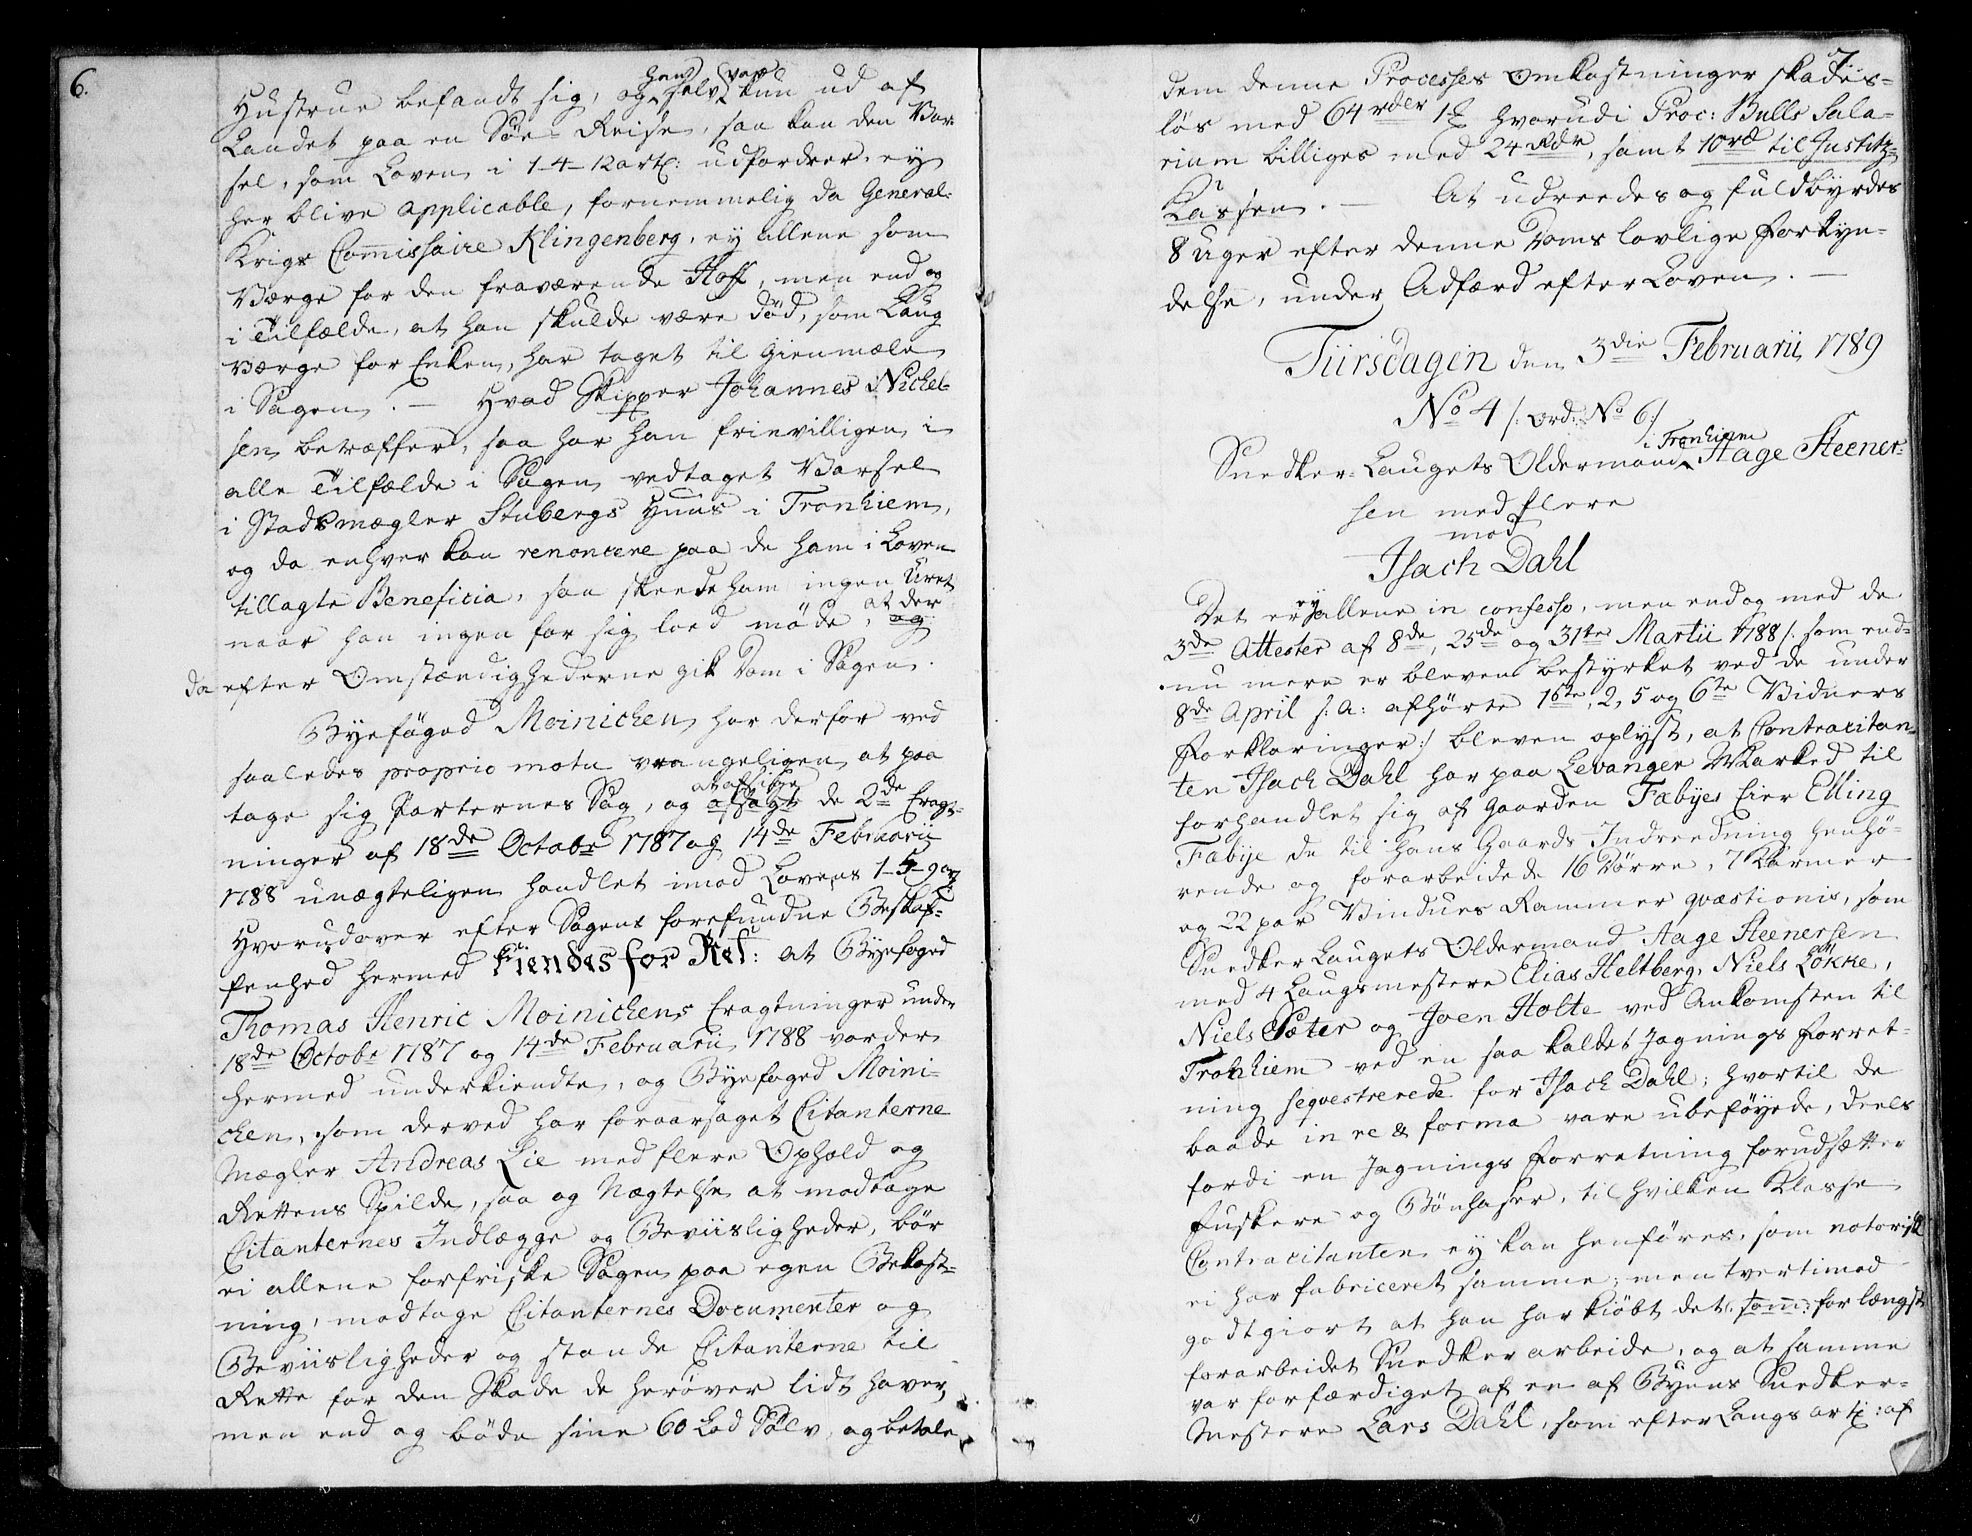 6.
Hustrue befandt sig, og han selv var kun ud af
Landet paa en Søe-Reise, saa kan den Var-
sel, som Loven i 1-4-12 art: udfordrer, ey
her blive applicable, fornemmelig da General-
Krigs Commissaire Klingenberg, ey allene som
Værge for den fraværende Hoff, men end og
i Tilfælde, at han skulde være død, som Laug
Værge for Enken, har taget til Gienmæle
i Sagen. — Hvad Skipper Johannes Nichel-
sen betræffer, saa har han frievilligen i
alle Tilfælde i Sagen vedtaget Varsel
i Stadsmægler Stubergs Huus i Tronhiem,
og da enhver kan renoncere paa de ham i Loven
tillagte Beneficia, saa skeede ham ingen Uret
naar han ingen for sig loed møde, at der og
da efter Omstændighederne gik Dom i Sagen.
Byefoged Moinichen har derfor ved
saaledes proprio motu vrangeligen at paa
tage sig Parternes Sag, og at afsige afsagt de 2de Eragt-
ninger af 18de Octobr 1787 og 14de Februarii
1788 unægteligen handlet imod Lovens 1-5-9 art:
Hvorudover efter Sagens forefundne Beskaf-
fenhed hermed Kiendes for Ret: at Byefoged
Thomas Henric Moinichens Eragtninger under
18de Octobr 1787 og 14de Februarii 1788 vorder
hermed underkiendte, og Byefoged Moini-
chen, som derved har foraarsaget Citanterne
Mægler Andreas Lie med flere Ophold og
Rettens Spilde, saa og Nægtelse at modtage
Citanternes Indlægge og Beviisligheder, bør
ei allene forfriske Sagen paa egen Bekost-
ning, modtage Citanternes Documenter og
Beviisligheder og stande Citanterne til
Rette for den Skade de herover lidt haver,
men end og bøde sine 60 Lod Sølv, og betale
7.
dem denne Processes Omkostninger skades-
løs med 64 rdlr 1 ß hvorudi Proc: Bulls Sala-
rium billiges med 24 Rdr, samt 10 rd til Justitz
Cassen. — At udreedes og fuldbyrdes
8 Uger efter denne Doms lovlige Forkyn-
delse, under Adfærd efter Loven. —
Tiirsdagen den 3die Februarii 1789
No 4 /: ord: No 6 :/
Snedker-Laugets Oldermand i Tronhiem Aage Steener-
sen med flere
mod
Isach Dahl
Det er ey allene in confesso, men endog med de
3de Attester af 8de, 25de og 31te Martii 1788 /: som end-
nu mere er bleven bestyrket ved de under
8de April s: a: afhørte 1ste, 2, 5 og 6te Vidners
Forklaringer :/ bleven oplyst, at Contracitan-
ten Isach Dahl har paa Levanger Marked til
forhandlet sig af Gaarden Fæbyes Eier Elling
Fæbye de til hans Gaards Indreedning henhø-
rende og forarbeidede 16 Dörre, 7 Karmer
og 22 par Vindues Rammer qvæstionis, som
Snedker Laugets Oldermand Aage Steenersen
med 4 Laugsmestere Elias Heltberg, Niels Løkke,
Niels Sæter og Joen Holte ved Ankomsten til
Tronhiem ved en saa kaldet Jagnings Forret-
ning seqvestrerede for Isach Dahl; hvortil de
baade in re & forma vare ubeføyede, deels
fordi en Jagnings Forretning forudsætter
Fuskere og Bönhaser, til hvilken Klasse
Contracitanten ey kan henføres, som notorisk
ei har fabriceret samme; men tvertimod
godtgiort at han har kiöbt det som for længst
forarbeidet Snedkerarbeide, og at samme
var forfærdiget af en af Byens Snedker-
Mestere Lars Dahl, som efter Laugs art: af